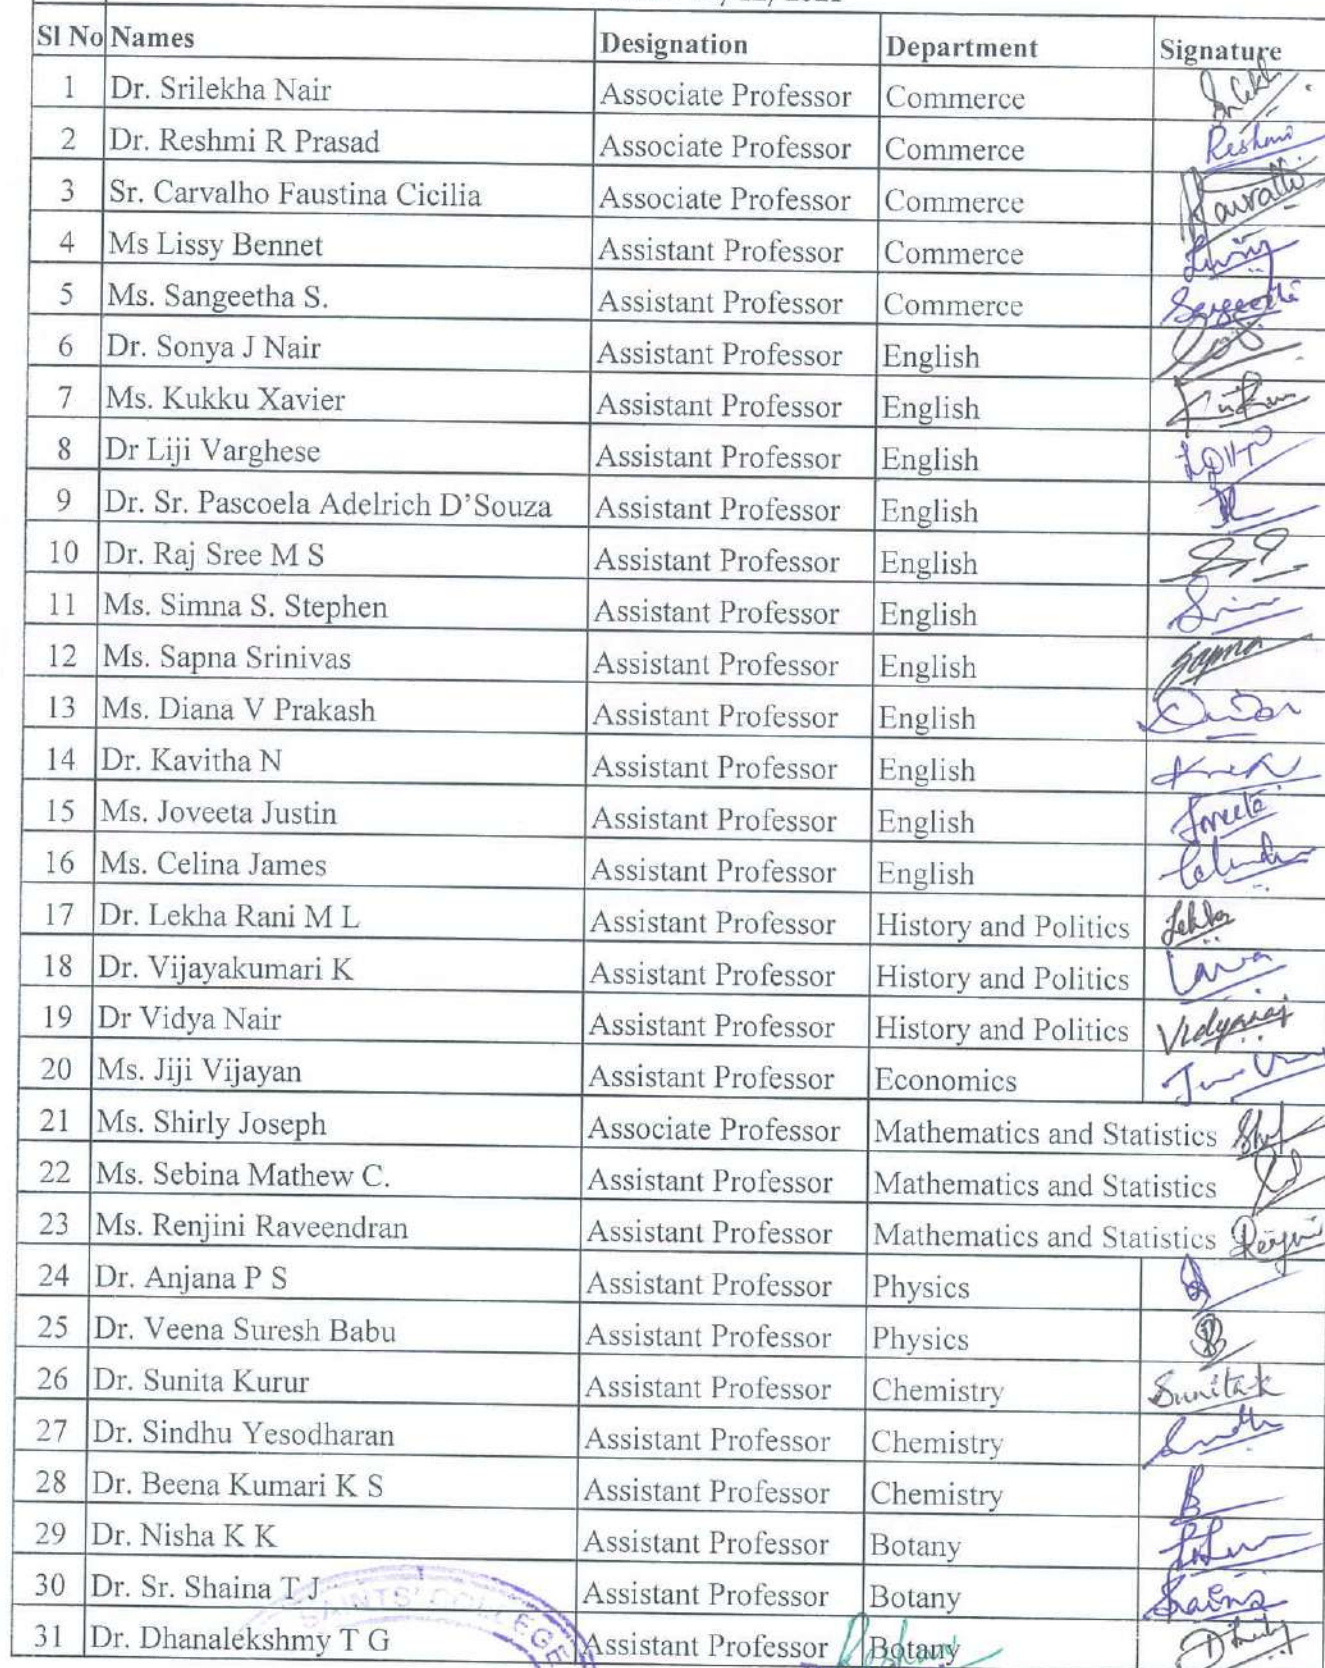 Sl No Names Designation Department Signature
1 Dr. Srilekha Nair Associate Professor Commerce
2 Dr. Reshmi R Prasad Associate Professor Commerce Reshmi
3 Sr. Carvalho Faustina Cicilia Associate Professor Commerce
4 Ms Lissy Bennet Assistant Professor Commerce
5 Ms. Sangeetha S. Assistant Professor Commerce
6 Dr. Sonya J Nair Assistant Professor English
7 Ms. Kukku Xavier Assistant Professor English
8 Dr Liji Varghese Assistant Professor English
9 Dr. Sr. Pascoela Adelrich D'Souza Assistant Professor English
10 Dr. Raj Sree M S Assistant Professor English
11 Ms. Simna S. Stephen Assistant Professor English
12 Ms. Sapna Srinivas Assistant Professor English Sapna
13 Ms. Diana V Prakash Assistant Professor English
14 Dr. Kavitha N Assistant Professor English
15 Ms. Joveeta Justin Assistant Professor English
16 Ms. Celina James Assistant Professor English
17 Dr. Lekha Rani M L Assistant Professor History and Politics Lekha
18 Dr. Vijayakumari K Assistant Professor History and Politics
19 Dr Vidya Nair Assistant Professor History and Politics
20 Ms. Jiji Vijayan Assistant Professor Economics
21 Ms. Shirly Joseph Associate Professor Mathematics and Statistics
22 Ms. Sebina Mathew C. Assistant Professor Mathematics and Statistics
23 Ms. Renjini Raveendran Assistant Professor Mathematics and Statistics
24 Dr. Anjana P S Assistant Professor Physics
25 Dr. Veena Suresh Babu Assistant Professor Physics
26 Dr. Sunita Kurur Assistant Professor Chemistry Sunita K
27 Dr. Sindhu Yesodharan Assistant Professor Chemistry
28 Dr. Beena Kumari K S Assistant Professor Chemistry
29 Dr. Nisha K K Assistant Professor Botany
30 Dr. Sr. Shaina T J Assistant Professor Botany Shaina
31 Dr. Dhanalekshmy T G Assistant Professor Botany
SAINTS' COLLEGE